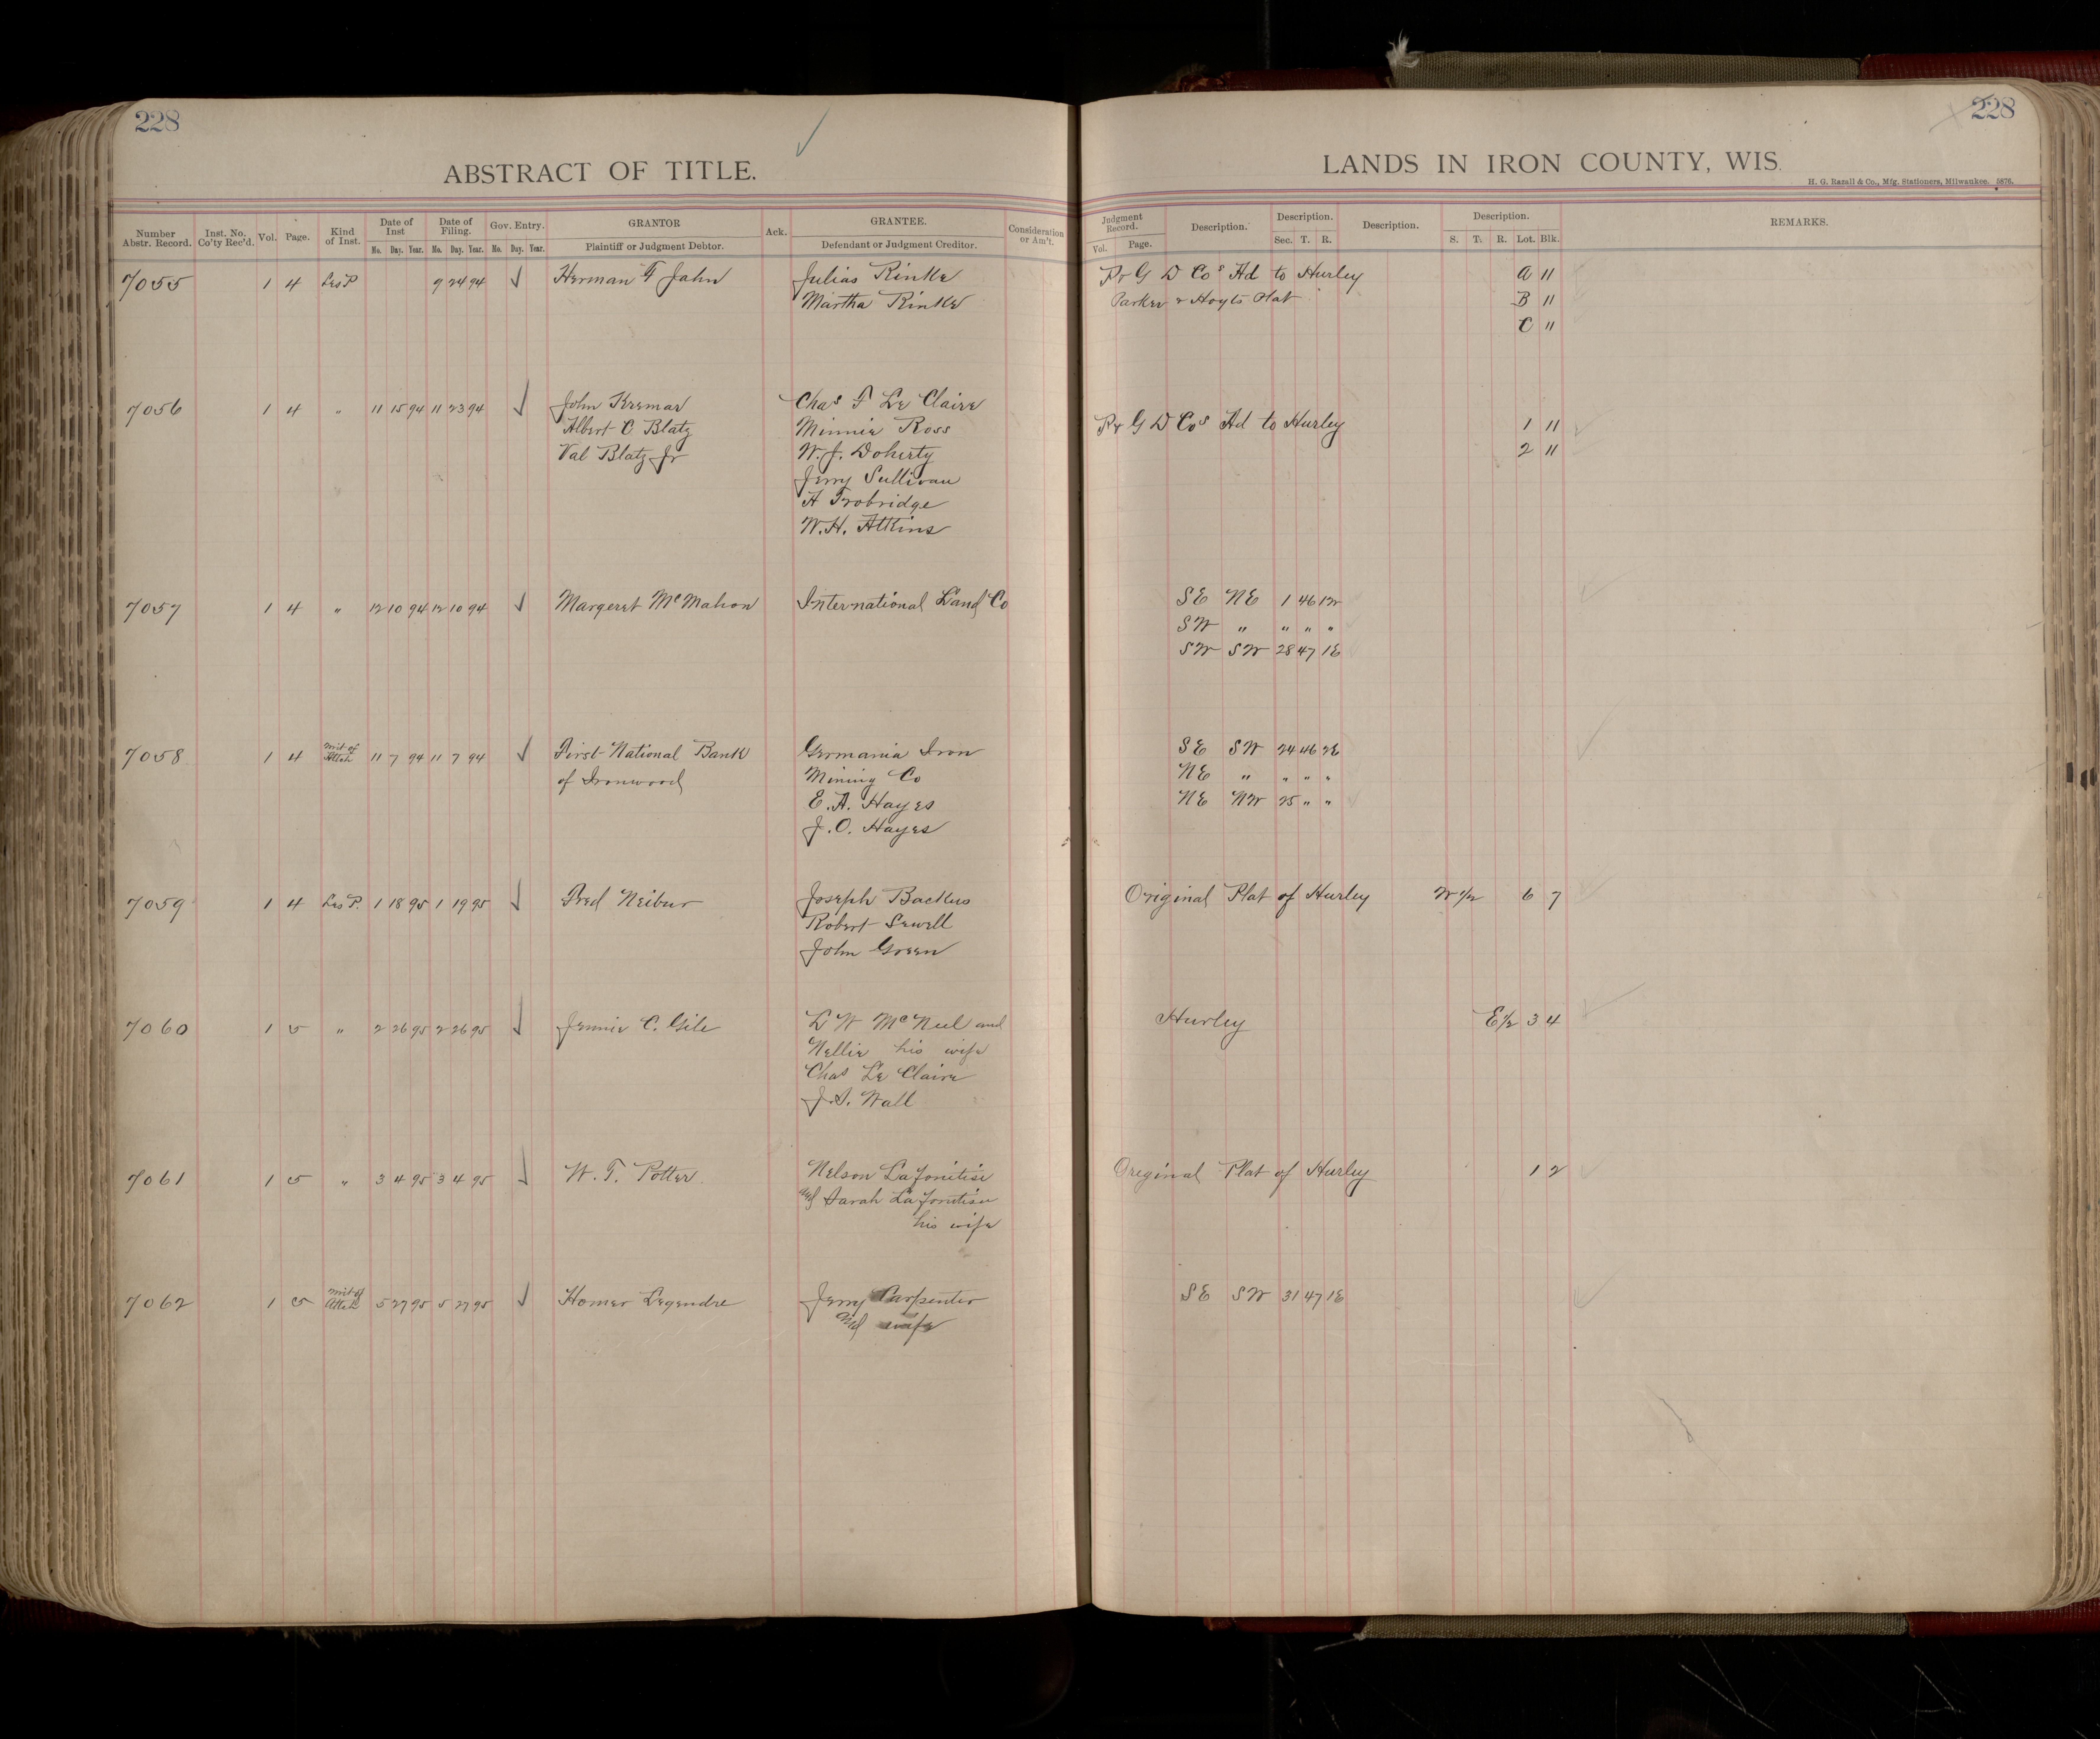 228
228
ABSTRACT OF TITLE.
LANDS IN IRON COUNTY, WIS.
H. G. Razall & Co., Mfg. Stationers, Milwaukee. 5876.
Number Abstr. Record. Inst. No. Co'ty Rec'd. Vol. Page. Kind of Inst. Date of Inst Date of Filing. Gov. Entry. GRANTOR Ack. GRANTEE. Consideration or Am't. Judgment Record. Description. Description. Description. Description. REMARKS.
No. Day. Year. No. Day. Year. No. Day. Year. Plaintiff or Judgment Debtor. Defendant or Judgment Creditor. Vol. Page. Sec. T. R. S. T. R. Lot. Blk.
7055 1 4 Les P 9 24 94 ✓ Herman F Jahn Julias Rinke P & G D Cos Ad to Hurley A 11
Martha Rinke Parker & Hoyts Plat B 11
C 11
7056 1 4 " 11 15 94 11 23 94 ✓ John Kremar Chas F Le Claire
Albert C Blatz Minnie Ross P & G D Cos Ad to Hurley 1 11
Val Blatz Jr W. J. Doherty 2 11
Jerry Sullivan
H Trobridge
W. H. Atkins
7057 1 4 " 12 10 94 12 10 94 ✓ Margeret McMahon International Land Co SE NE 1 46 1W
SW " " " "
SW SW 28 47 1E
7058 1 4 Writ of Attch 11 7 94 11 7 94 ✓ First National Bank Germania Iron SE SW 24 46 2E
of Ironwood Mining Co NE " " " "
E. A. Hayes NE NW 25 " "
J. O. Hayes
7059 1 4 Les P. 1 18 95 1 19 95 ✓ Fred Neibur Joseph Backus Original Plat of Hurley W 1/2 6 7
Robert Sewell
John Green
7060 1 5 " 2 26 95 2 26 95 ✓ Jennie C. Gile L W McNeel and Hurley E 1/2 3 4
Nellie his wife
Chas Le Claire
J. S. Wall
7061 1 5 " 3 4 95 3 4 95 ✓ W. T. Potter Nelson Lafonitise Original Plat of Hurley 1 2
and Sarah Lafontise
his wife
7062 1 5 Writ of Attch 5 27 95 5 27 95 ✓ Homer Legendre Jerry Carpenter SE SW 31 47 1E
and wife